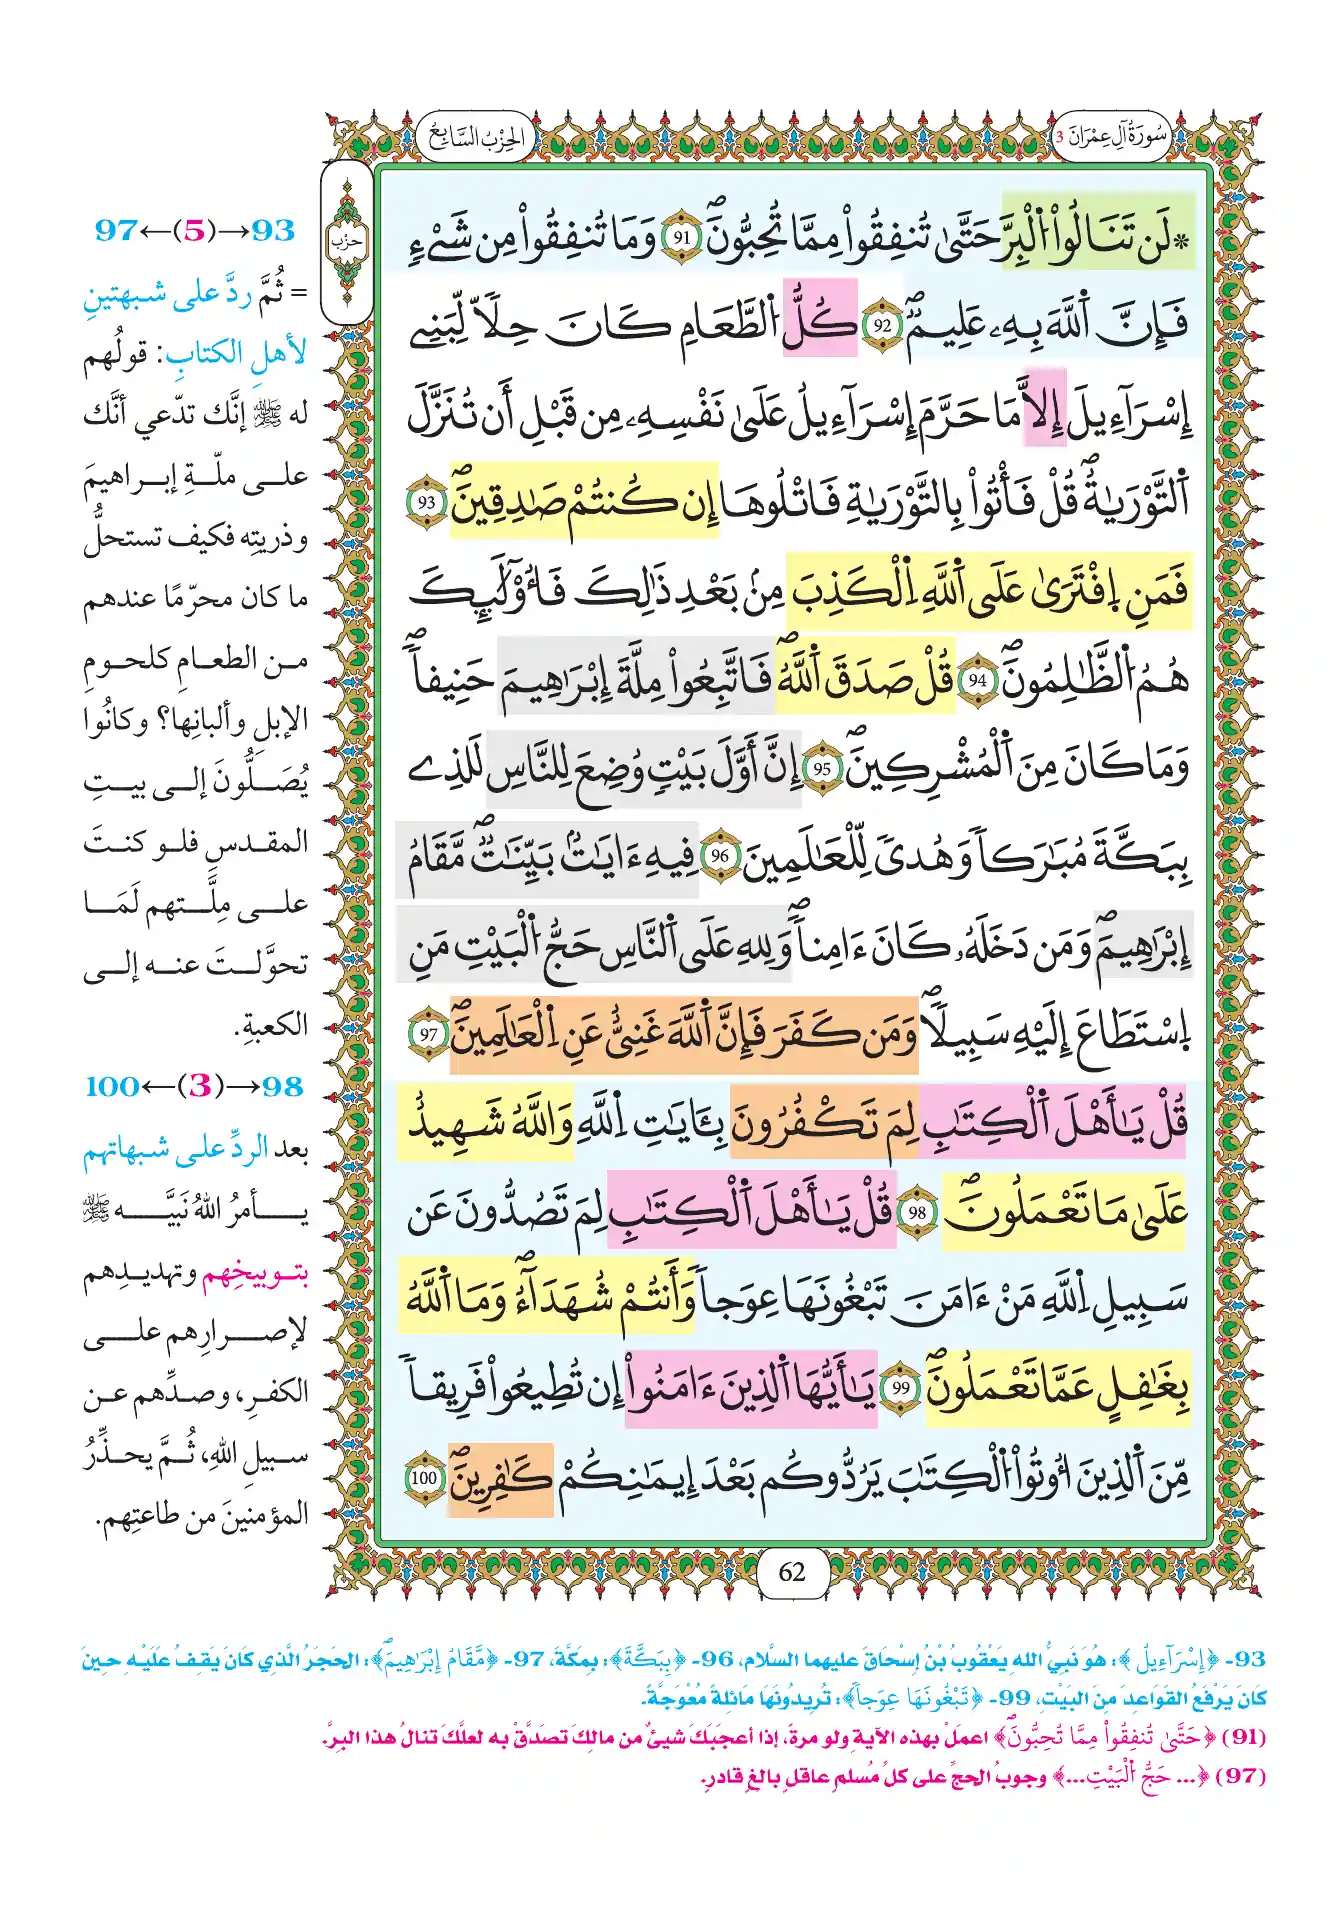 سُورَةُ آلِ عِمْرَانَ 3
الحِزْبُ السَّابِعُ
حزب
* لَن تَنَالُوا۟ اُ۬لْبِرَّ حَتَّىٰ تُنفِقُوا۟ مِمَّا تُحِبُّونَۖ 91 وَمَا تُنفِقُوا۟ مِن شَےْءٖ
فَإِنَّ اَ۬للَّهَ بِهِۦ عَلِيمٞۖ 92 كُلُّ اُ۬لطَّعَامِ كَانَ حِلّاٗ لِّبَنِےٓ
إِسْرَآءِيلَ إِلَّا مَا حَرَّمَ إِسْرَآءِيلُ عَلَىٰ نَفْسِهِۦ مِن قَبْلِ أَن تُنَزَّلَ
اَ۬لتَّوْرَىٰةُۖ قُلْ فَأْتُوا۟ بِالتَّوْرَىٰةِ فَاتْلُوهَا إِن كُنتُمْ صَٰدِقِينَۖ 93
فَمَنِ اِ۪فْتَرَىٰ عَلَى اَ۬للَّهِ اِ۬لْكَذِبَ مِنۢ بَعْدِ ذَٰلِكَ فَأُو۟لَٰٓئِكَ
هُمُ اُ۬لظَّٰلِمُونَۖ 94 قُلْ صَدَقَ اَ۬للَّهُۖ فَاتَّبِعُوا۟ مِلَّةَ إِبْرَٰهِيمَ حَنِيفاٗۖ
وَمَا كَانَ مِنَ اَ۬لْمُشْرِكِينَۖ 95 إِنَّ أَوَّلَ بَيْتٖ وُضِعَ لِلنَّاسِ لَلذِے
بِبَكَّةَ مُبَٰرَكاٗ وَهُدىٗ لِّلْعَٰلَمِينَ 96 فِيهِ ءَايَٰتُۢ بَيِّنَٰتٞۖ مَّقَامُ
إِبْرَٰهِيمَۖ وَمَن دَخَلَهُۥ كَانَ ءَامِناٗۖ وَلِلهِ عَلَى اَ۬لنَّاسِ حَجُّ اُ۬لْبَيْتِ مَنِ
اِ۪سْتَطَاعَ إِلَيْهِ سَبِيلاٗۖ وَمَن كَفَرَ فَإِنَّ اَ۬للَّهَ غَنِيٌّ عَنِ اِ۬لْعَٰلَمِينَۖ 97
قُلْ يَٰٓأَهْلَ اَ۬لْكِتَٰبِ لِمَ تَكْفُرُونَ بِـَٔايَٰتِ اِ۬للَّهِ وَاللَّهُ شَهِيدٌ
عَلَىٰ مَا تَعْمَلُونَۖ 98 قُلْ يَٰٓأَهْلَ اَ۬لْكِتَٰبِ لِمَ تَصُدُّونَ عَن
سَبِيلِ اِ۬للَّهِ مَنْ ءَامَنَ تَبْغُونَهَا عِوَجاٗ وَأَنتُمْ شُهَدَآءُۖ وَمَا اَ۬للَّهُ
بِغَٰفِلٍ عَمَّا تَعْمَلُونَۖ 99 يَٰٓأَيُّهَا اَ۬لذِينَ ءَامَنُوٓا۟ إِن تُطِيعُوا۟ فَرِيقاٗ
مِّنَ اَ۬لذِينَ أُوتُوا۟ اُ۬لْكِتَٰبَ يَرُدُّوكُم بَعْدَ إِيمَٰنِكُمْ كَٰفِرِينَۖ 100
62
93→(5)←97
= ثُمَّ ردَّ على شبهتينِ
لأهلِ الكتابِ: قولُهم
له ﷺ إنَّك تدّعي أنَّك
على ملّةِ إبراهيمَ
وذريتِه فكيف تستحلُّ
ما كان محرّمًا عندهم
من الطعامِ كلحومِ
الإبلِ وألبانِها؟ وكانُوا
يُصَلُّونَ إلى بيتِ
المقدسِ فلو كنتَ
على مِلَّتهم لَمَا
تحوَّلتَ عنه إلى
الكعبةِ.
98→(3)←100
بعد الردِّ على شبهاتهم
يأمرُ اللهُ نَبيَّه ﷺ
بتوبيخِهم وتهديدِهم
لإصرارِهم على
الكفرِ، وصدِّهم عن
سبيلِ اللهِ، ثُمَّ يحذِّرُ
المؤمنينَ من طاعتِهم.
93- ﴿إِسْرَآءِيلُ﴾: هُوَ نَبيُّ اللهِ يَعْقُوبُ بْنُ إِسْحَاقَ عليهما السَّلام، 96- ﴿بِبَكَّةَ﴾: بمَكَّةَ، 97- ﴿مَّقَامُ إِبْرَٰهِيمَۖ﴾: الحَجَرُ الَّذِي كَانَ يَقِفُ عَلَيْهِ حِينَ
كَانَ يَرْفَعُ القَوَاعِدَ مِنَ البَيْتِ، 99- ﴿تَبْغُونَهَا عِوَجاٗ﴾: تُرِيدُونَهَا مَائِلَةً مُعْوَجَّةً.
(91) ﴿حَتَّىٰ تُنفِقُوا۟ مِمَّا تُحِبُّونَۖ﴾ اعملْ بهذه الآيةِ ولو مرةً، إذا أعجبَكَ شيئٌ من مالِكَ تصدَّقْ به لعلَّكَ تنالُ هذا البِرَّ.
(97) ﴿... حَجُّ اُ۬لْبَيْتِ...﴾ وجوبُ الحجِّ على كلِّ مُسلمٍ عاقلٍ بالغٍ قادرٍ.